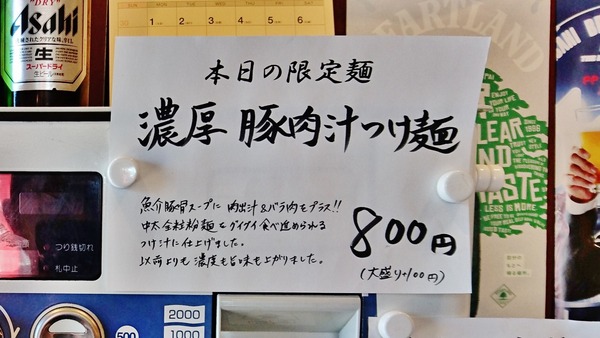 "DRY"
Asahi
生
スーパードライ
生ビール
1 2 3 4 5 6
本日の限定麺
濃厚 豚肉汁つけ麺
魚介豚骨スープに 肉出汁&バラ肉をプラス!!
中太全粒粉麺をグイグイ食べ進められる
つけ汁に仕上げました。
以前よりも濃度も旨味も上がりました。
800円
(大盛り+100円)
つり銭切れ
札中止
500
2000
1000
HEARTLAND
ENJOY
YOUR LIFE
SINCE 1986
CLEAR
AND
TASTE